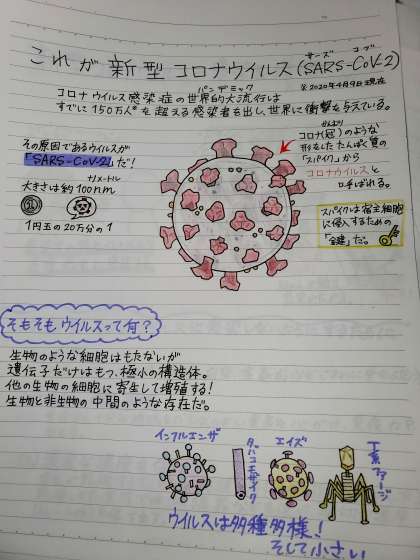 これが新型コロナウイルス(SARS-CoV-2)
サーズ コブ
※2020年4月9日現在
パンデミック
コロナウイルス感染症の世界的大流行は
すでに150万人を超える感染者も出し、世界に衝撃を与えている。
その原因であるウイルスが
「SARS-CoV-2」だ!
ナノメートル
大きさは約100nm
1円玉の20万分の1
かんむり
コロナ(冠)のような
形をした たんぱく質の
「スパイク」から
コロナウイルスと
呼ばれる。
スパイクは宿主細胞
に侵入するための
「鍵」だ。
そもそもウイルスって何?
生物のような細胞はもたないが
遺伝子だけはもつ、極小の構造体。
他の生物の細胞に寄生して増殖する!
生物と非生物の中間のような存在だ。
インフルエンザ
タバコモザイク
エイズ
T系ファージ
ウイルスは多種多様!
そして小さい